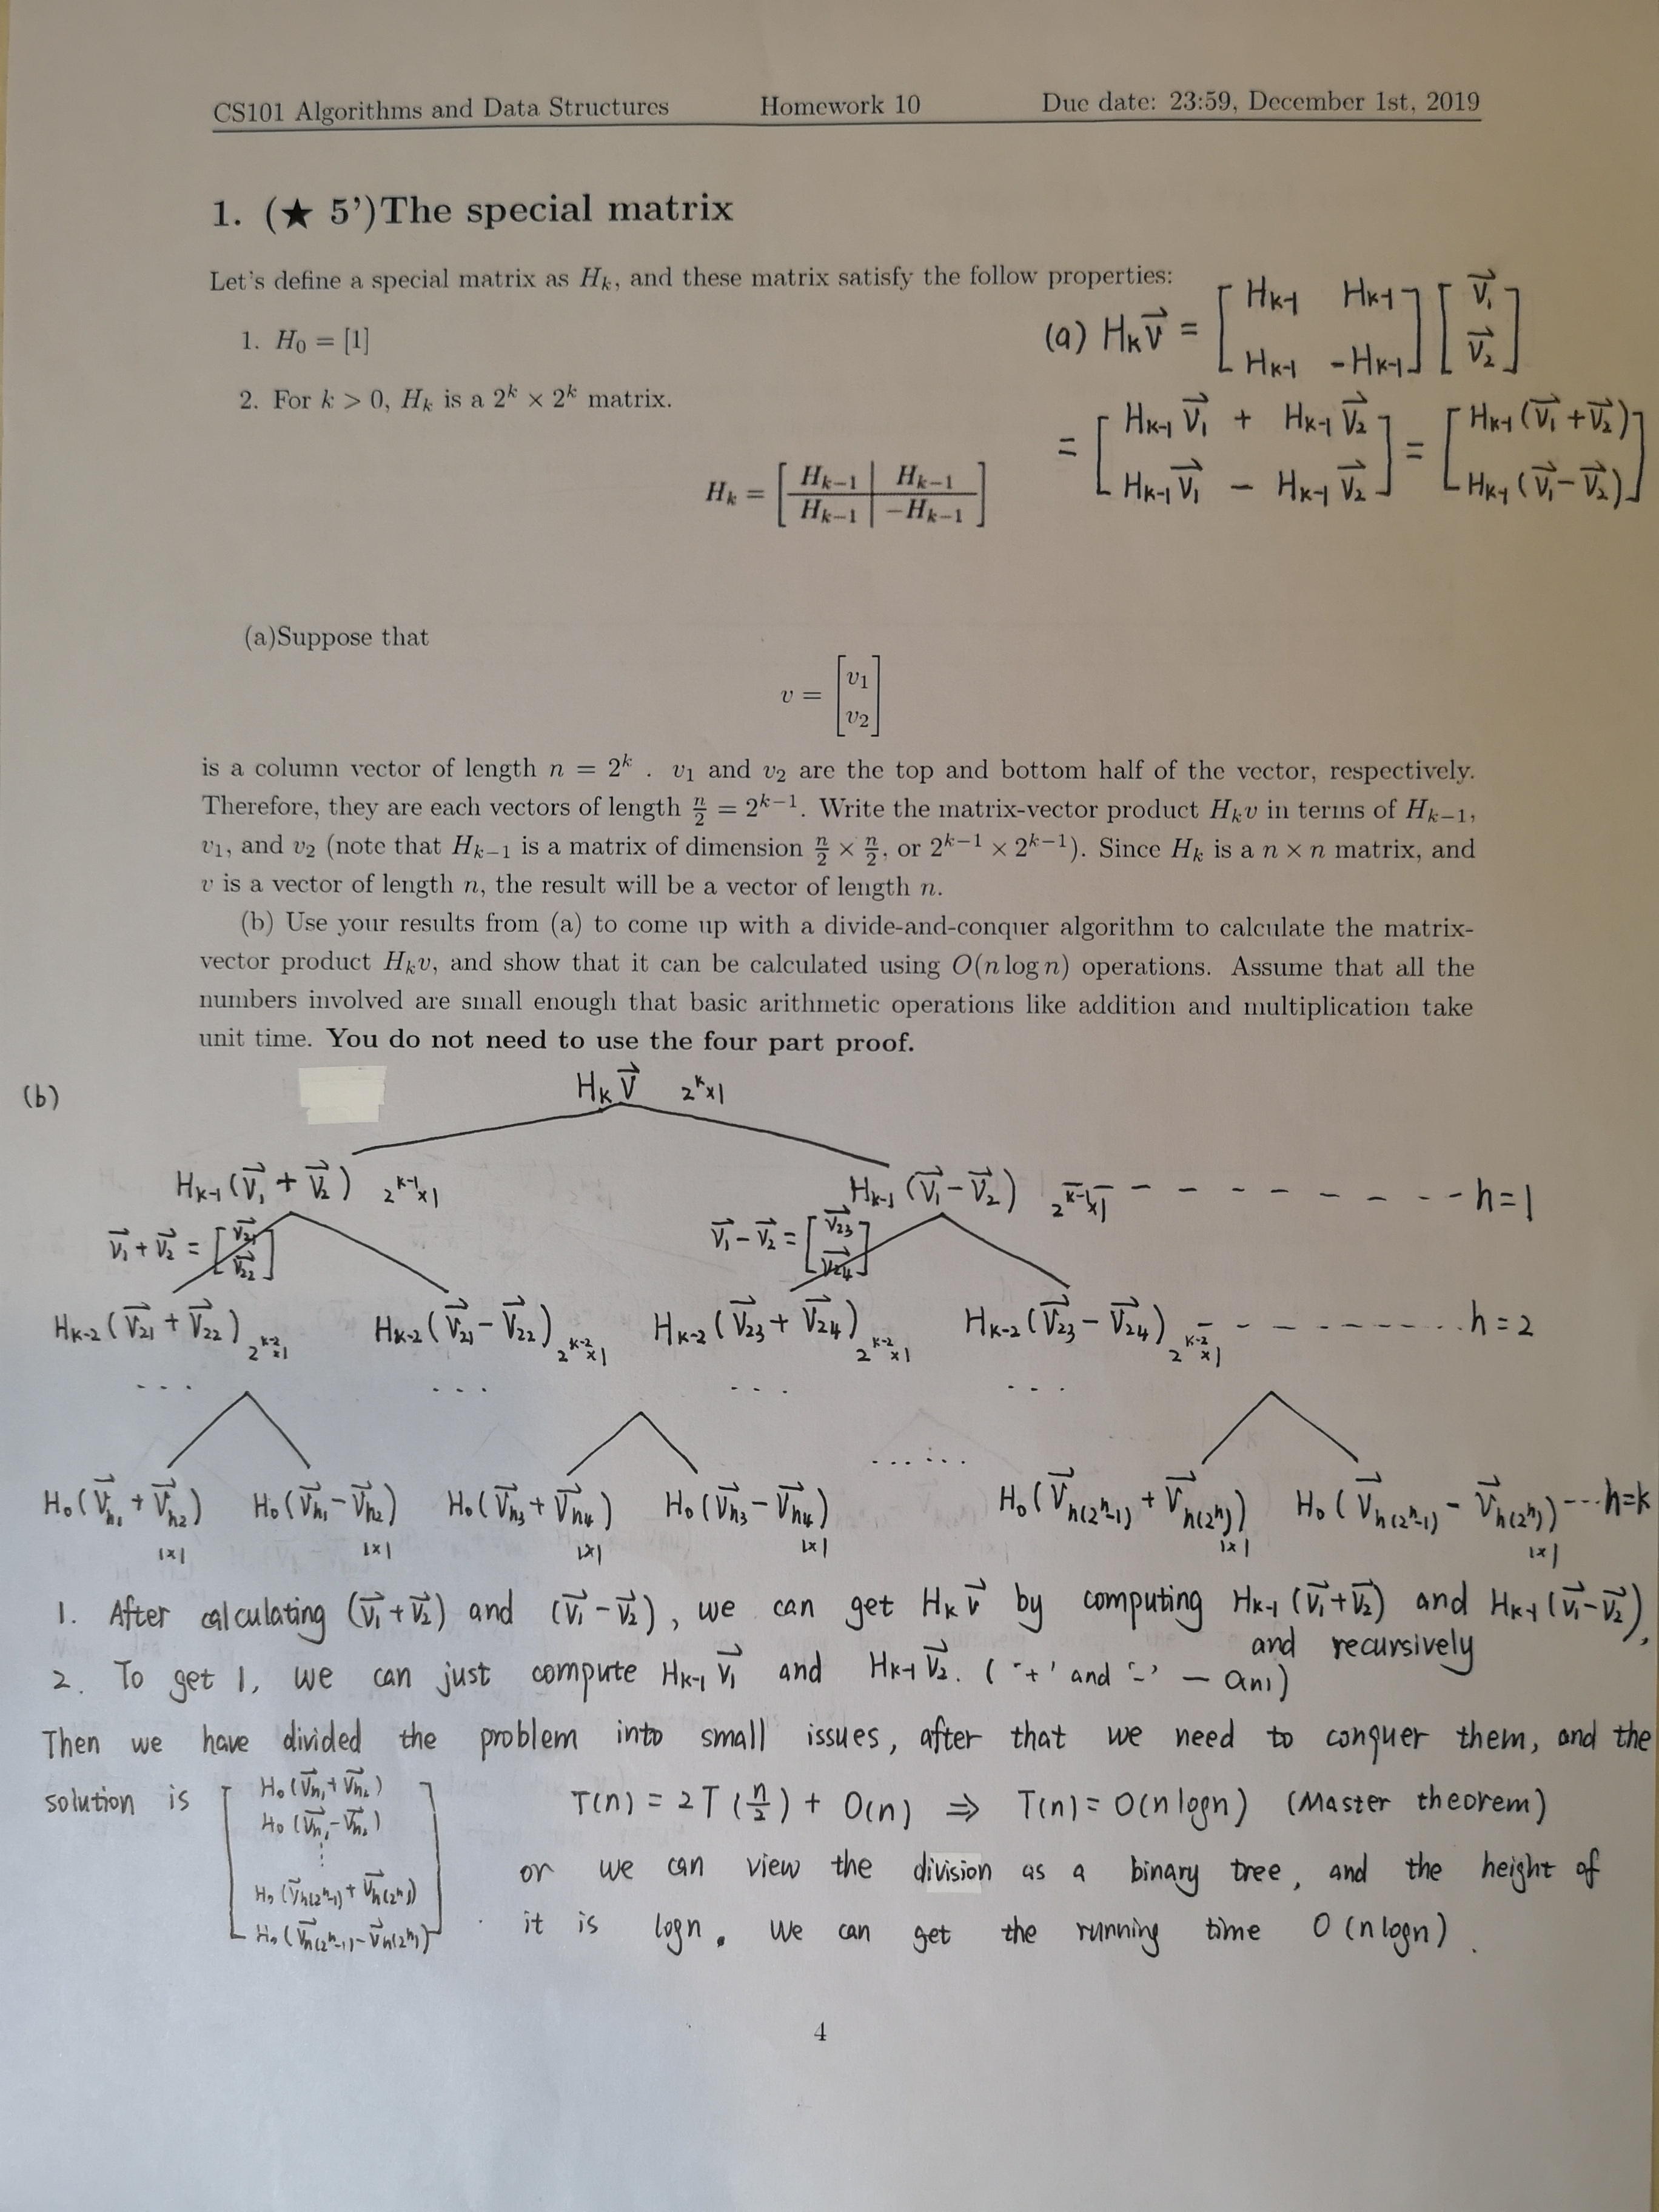 CS101 Algorithms and Data Structures Homework 10 Due date: 23:59, December 1st, 2019
1. (★ 5')The special matrix
Let's define a special matrix as H_k, and these matrix satisfy the follow properties:
1. H_0 = [1]
2. For k > 0, H_k is a 2^k × 2^k matrix.
H_k = [ H_{k−1} | H_{k−1}
H_{k−1} | −H_{k−1} ]
(a) H_k v⃗ = [ H_{k-1} H_{k-1} ] [ v⃗_1 ]
[ H_{k-1} -H_{k-1} ] [ v⃗_2 ]
= [ H_{k-1} v⃗_1 + H_{k-1} v⃗_2 ] = [ H_{k-1} (v⃗_1 + v⃗_2) ]
[ H_{k-1} v⃗_1 - H_{k-1} v⃗_2 ] [ H_{k-1} (v⃗_1 - v⃗_2) ]
(a)Suppose that
v = [ v_1
v_2 ]
is a column vector of length n = 2^k . v_1 and v_2 are the top and bottom half of the vector, respectively.
Therefore, they are each vectors of length n/2 = 2^{k−1}. Write the matrix-vector product H_k v in terms of H_{k−1},
v_1, and v_2 (note that H_{k−1} is a matrix of dimension n/2 × n/2, or 2^{k−1} × 2^{k−1}). Since H_k is a n × n matrix, and
v is a vector of length n, the result will be a vector of length n.
(b) Use your results from (a) to come up with a divide-and-conquer algorithm to calculate the matrix-
vector product H_k v, and show that it can be calculated using O(n log n) operations. Assume that all the
numbers involved are small enough that basic arithmetic operations like addition and multiplication take
unit time. You do not need to use the four part proof.
(b) H_k v⃗ 2^k×1
H_{k-1} (v⃗_1 + v⃗_2) 2^{k-1}×1 H_{k-1} (v⃗_1 - v⃗_2) 2^{k-1}×1 - - - - - - - - h=1
v⃗_1 + v⃗_2 = [ v⃗_21 v⃗_22 ] v⃗_1 - v⃗_2 = [ v⃗_23 v⃗_24 ]
H_{k-2} (v⃗_21 + v⃗_22) 2^{k-2}×1 H_{k-2} (v⃗_21 - v⃗_22) 2^{k-2}×1 H_{k-2} (v⃗_23 + v⃗_24) 2^{k-2}×1 H_{k-2} (v⃗_23 - v⃗_24) 2^{k-2}×1 - - - - - - - h=2
... ... ... ...
......
H_0 (v⃗_{h1} + v⃗_{h2}) H_0 (v⃗_{h1} - v⃗_{h2}) H_0 (v⃗_{h3} + v⃗_{h4}) H_0 (v⃗_{h3} - v⃗_{h4}) H_0 (v⃗_{h(2^h-1)} + v⃗_{h(2^h)}) H_0 (v⃗_{h(2^h-1)} - v⃗_{h(2^h)}) --- h=k
1×1 1×1 1×1 1×1 1×1 1×1
1. After calculating (v⃗_1 + v⃗_2) and (v⃗_1 - v⃗_2), we can get H_k v⃗ by computing H_{k-1} (v⃗_1 + v⃗_2) and H_{k-1} (v⃗_1 - v⃗_2),
and recursively
2. To get 1, we can just compute H_{k-1} v⃗_1 and H_{k-1} v⃗_2. ( '+' and '-' — O(n))
Then we have divided the problem into small issues, after that we need to conquer them, and the
solution is [ H_0 (v⃗_{h1} + v⃗_{h2})
H_0 (v⃗_{h1} - v⃗_{h2})
⋮
H_0 (v⃗_{h(2^h-1)} + v⃗_{h(2^h)})
H_0 (v⃗_{h(2^h-1)} - v⃗_{h(2^h)}) ] .
T(n) = 2T(n/2) + O(n) ⇒ T(n) = O(nlogn) (Master theorem)
or we can view the division as a binary tree, and the height of
it is logn. We can get the running time O(nlogn).
4